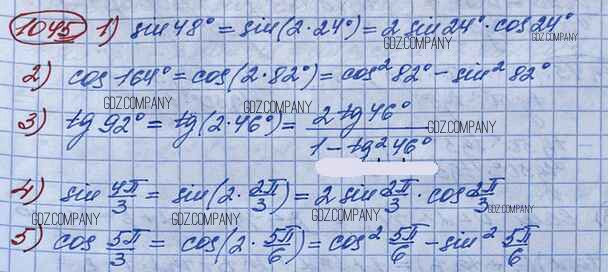 1045 1) sin 48° = sin(2·24°) = 2 sin 24° · cos 24°
GDZ.COMPANY GDZ.COMPANY
2) cos 164° = cos(2·82°) = cos² 82° − sin² 82°
GDZ.COMPANY GDZ.COMPANY
3) tg 92° = tg(2·46°) = 2 tg 46° / 1 − tg² 46°
GDZ.COMPANY
4) sin 4π/3 = sin(2 · 2π/3) = 2 sin 2π/3 · cos 2π/3
GDZ.COMPANY GDZ.COMPANY GDZ.COMPANY GDZ.COMPANY
5) cos 5π/3 = cos(2 · 5π/6) = cos² 5π/6 − sin² 5π/6